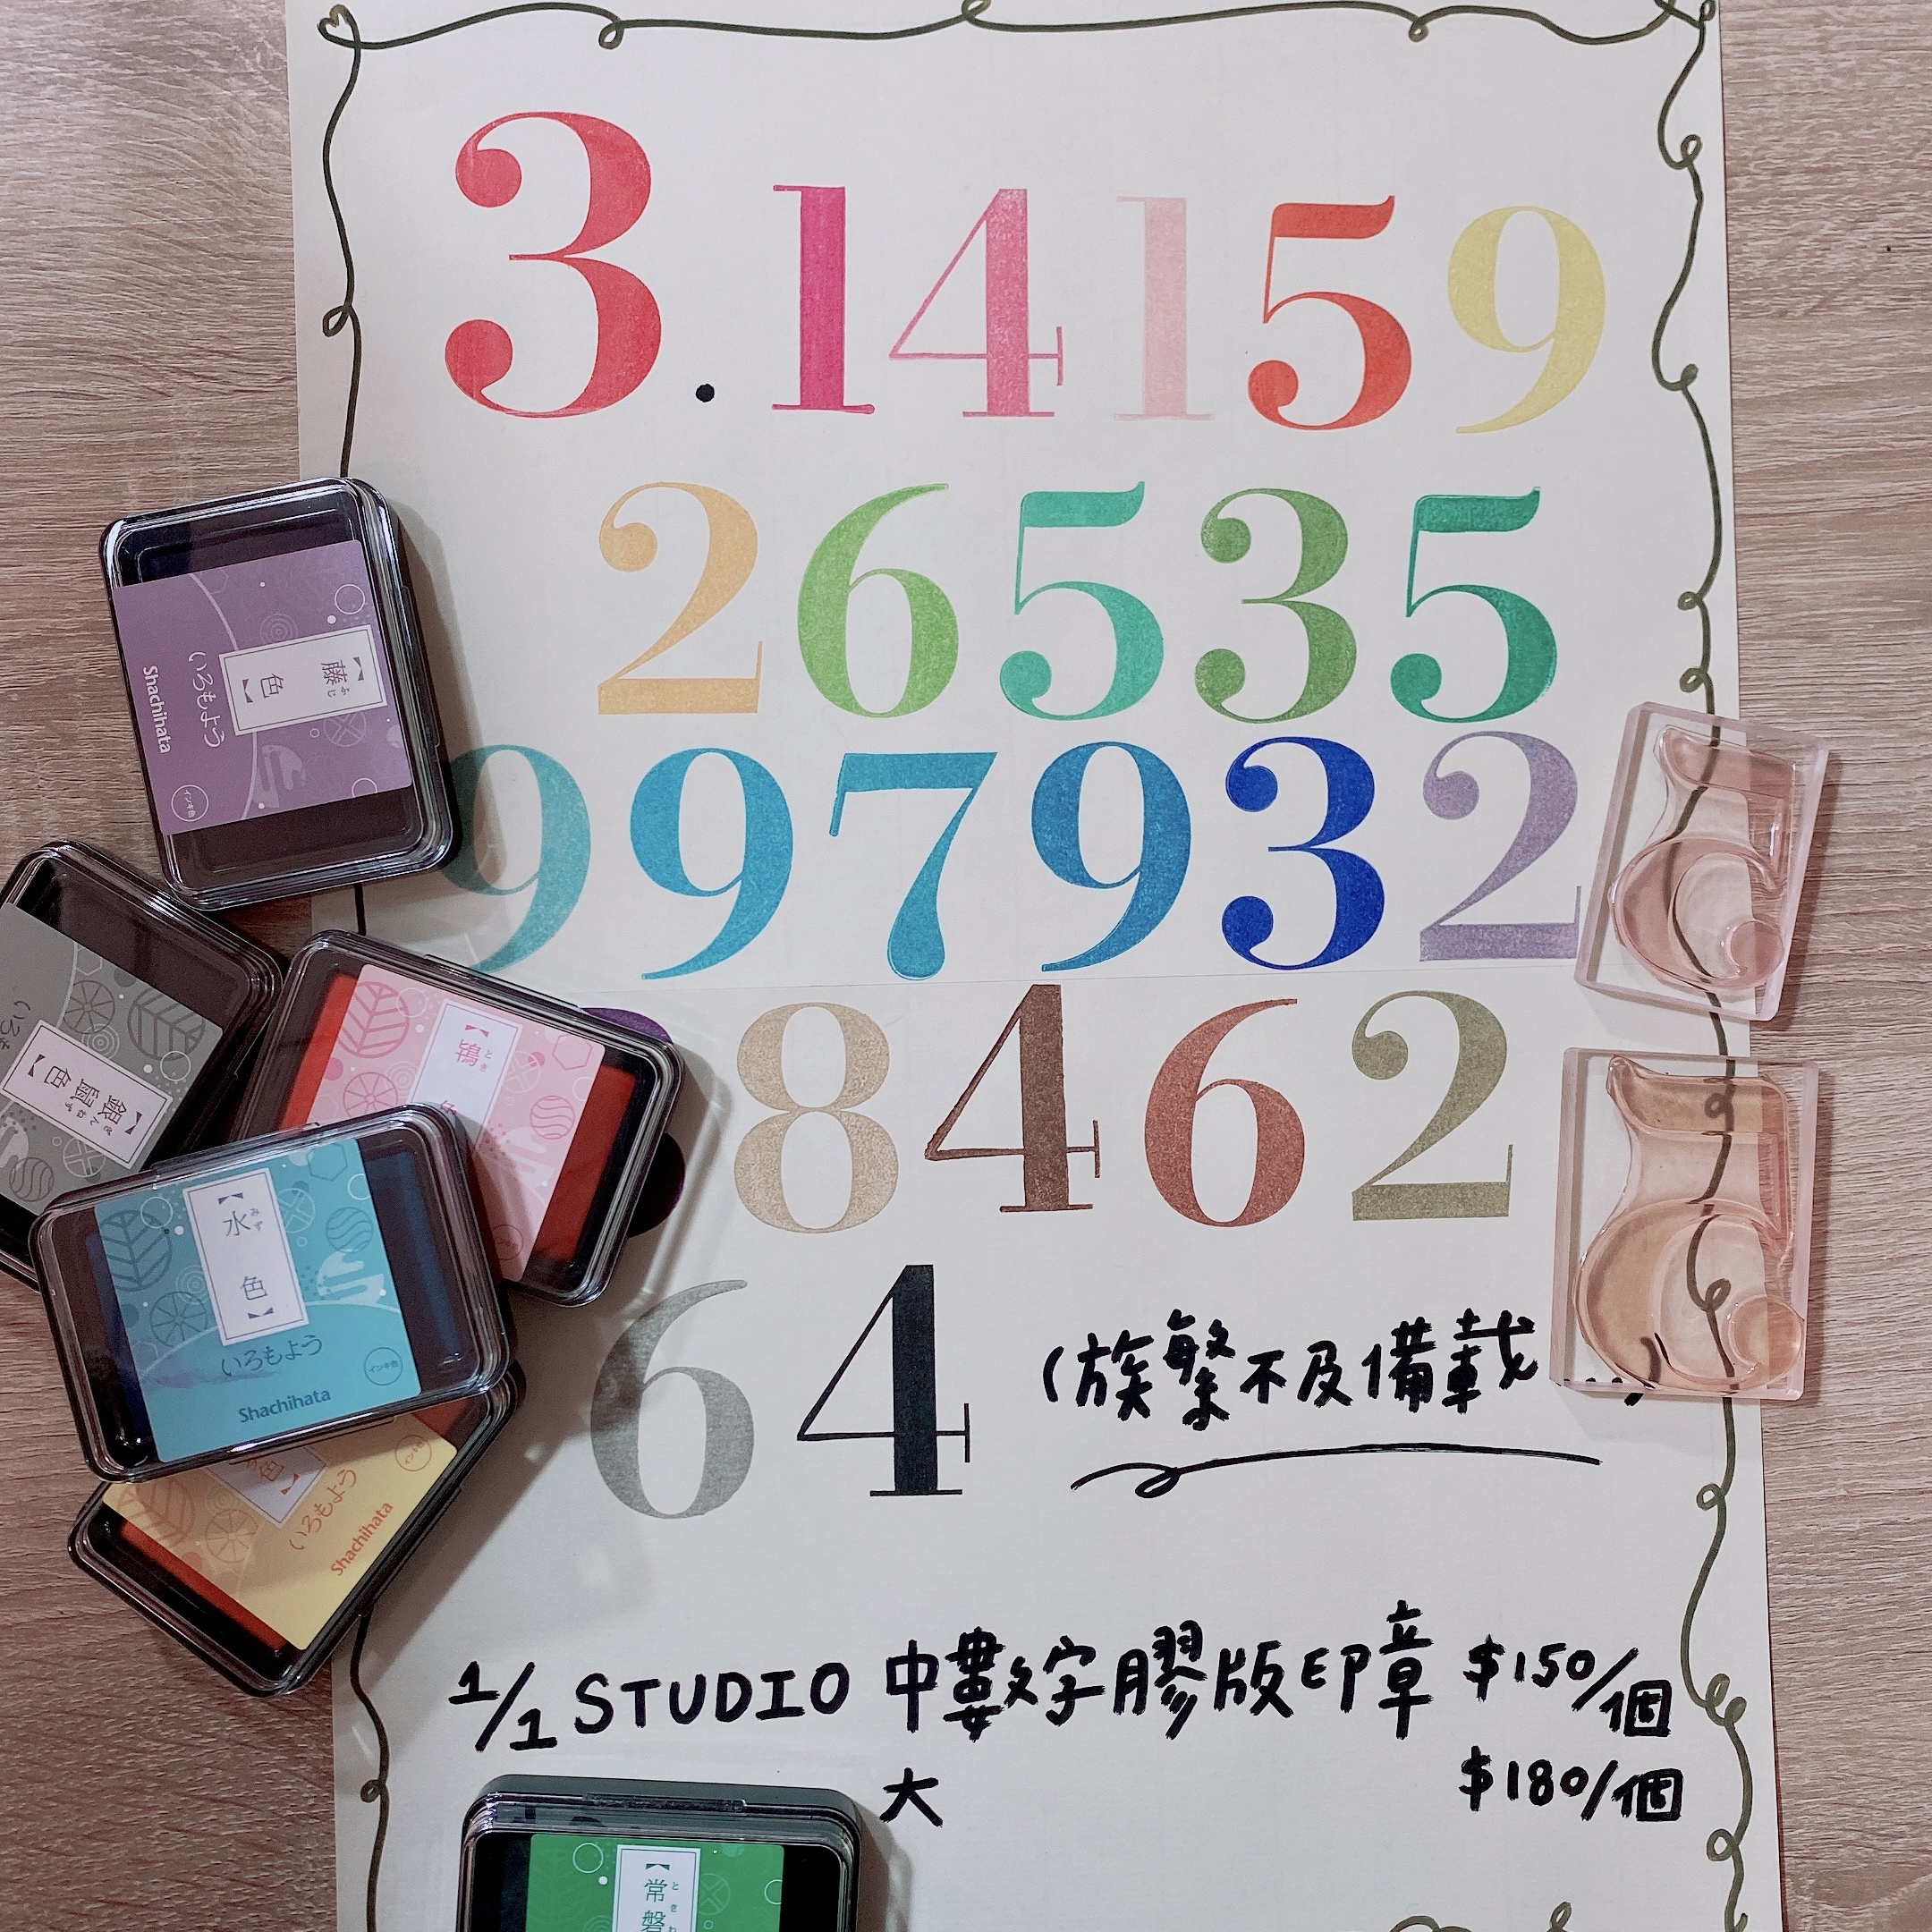 3.14159
26535
997932
8462
64 (族繁不及備載
1/1 STUDIO 中數字膠版印章 $150/個
大 $180/個
【藤色】
ふじ
いろもよう
Shachihata
インキ色
【銀鼠色】
ぎんねず
いろ
【鴇
とき
【水色】
みず
いろもよう
インキ色
Shachihata
色】
いろもよう
インキ色
Shachihata
【常磐
ときわ